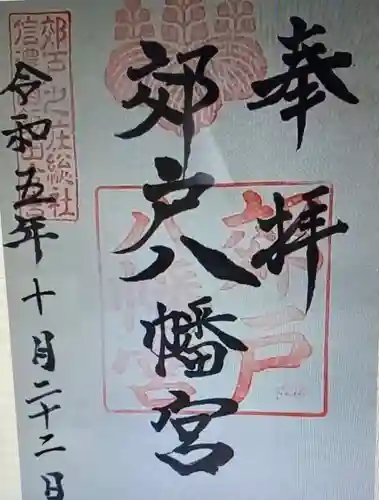 奉拝
郊戸八幡宮
令和五年十月二十二日
郊戸
八幡宮